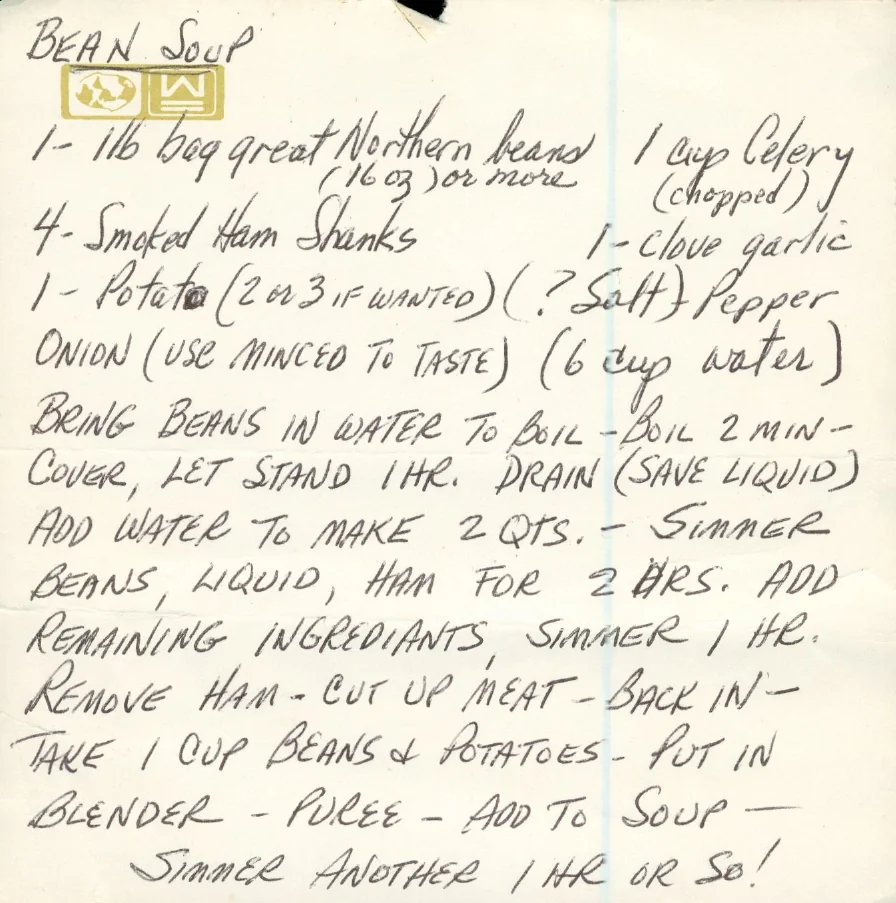 BEAN SOUP
1- 1lb bag great Northern beans 1 cup Celery
(16 oz) or more (chopped)
4- Smoked Ham Shanks 1- clove garlic
1- Potato (2 or 3 IF WANTED) (? Salt) Pepper
ONION (USE MINCED TO TASTE) (6 cup water)
BRING BEANS IN WATER TO BOIL - BOIL 2 MIN -
COVER, LET STAND 1 HR. DRAIN (SAVE LIQUID)
ADD WATER TO MAKE 2 QTS. - SIMMER
BEANS, LIQUID, HAM FOR 2 HRS. ADD
REMAINING INGREDIANTS, SIMMER 1 HR.
REMOVE HAM - CUT UP MEAT - BACK IN -
TAKE 1 CUP BEANS & POTATOES - PUT IN
BLENDER - PUREE - ADD TO SOUP -
SIMMER ANOTHER 1 HR OR SO!